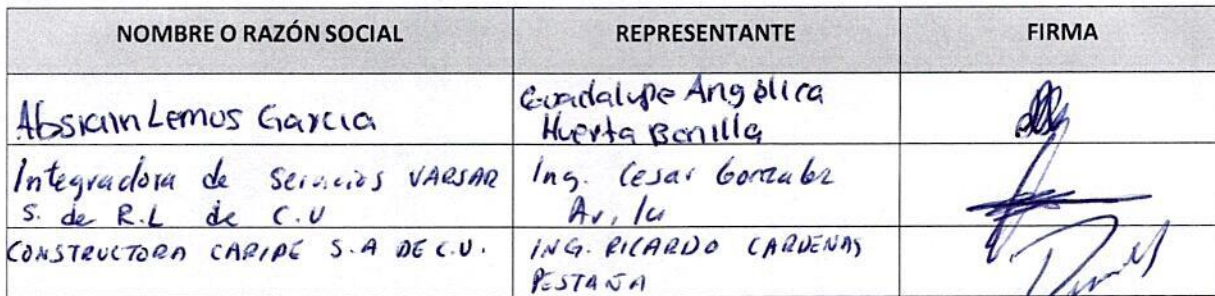 NOMBRE O RAZÓN SOCIAL REPRESENTANTE FIRMA
Absiam Lemus Garcia Guadalupe Angélica
Huerta Bonilla
Integradora de Servicios VARSAR Ing. Cesar Gonzalez
S. de R.L de C.V Avila
CONSTRUCTORA CARIPE S.A DE C.V. ING. RICARDO CARDENAS
PESTAÑA